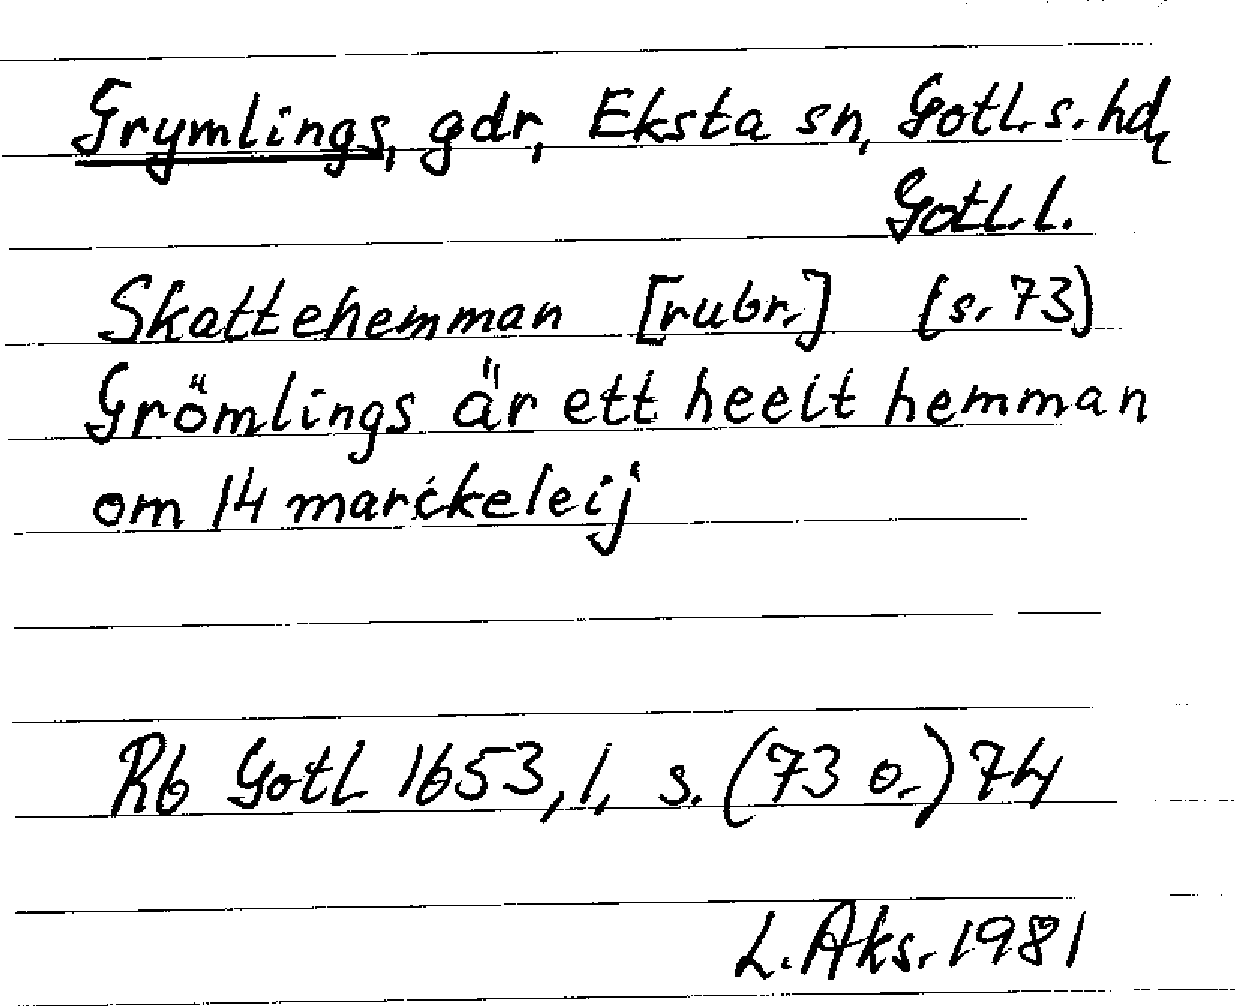 Grymlings, gdr, Eksta sn, Gotl. s. hd,
Gotl. l.
Skattehemman [rubr.] (s. 73)
Grömlings är ett heelt hemman
om 14 marckeleij
Rb Gotl 1653, 1, s. (73 o.) 74
L. Aks. 1981